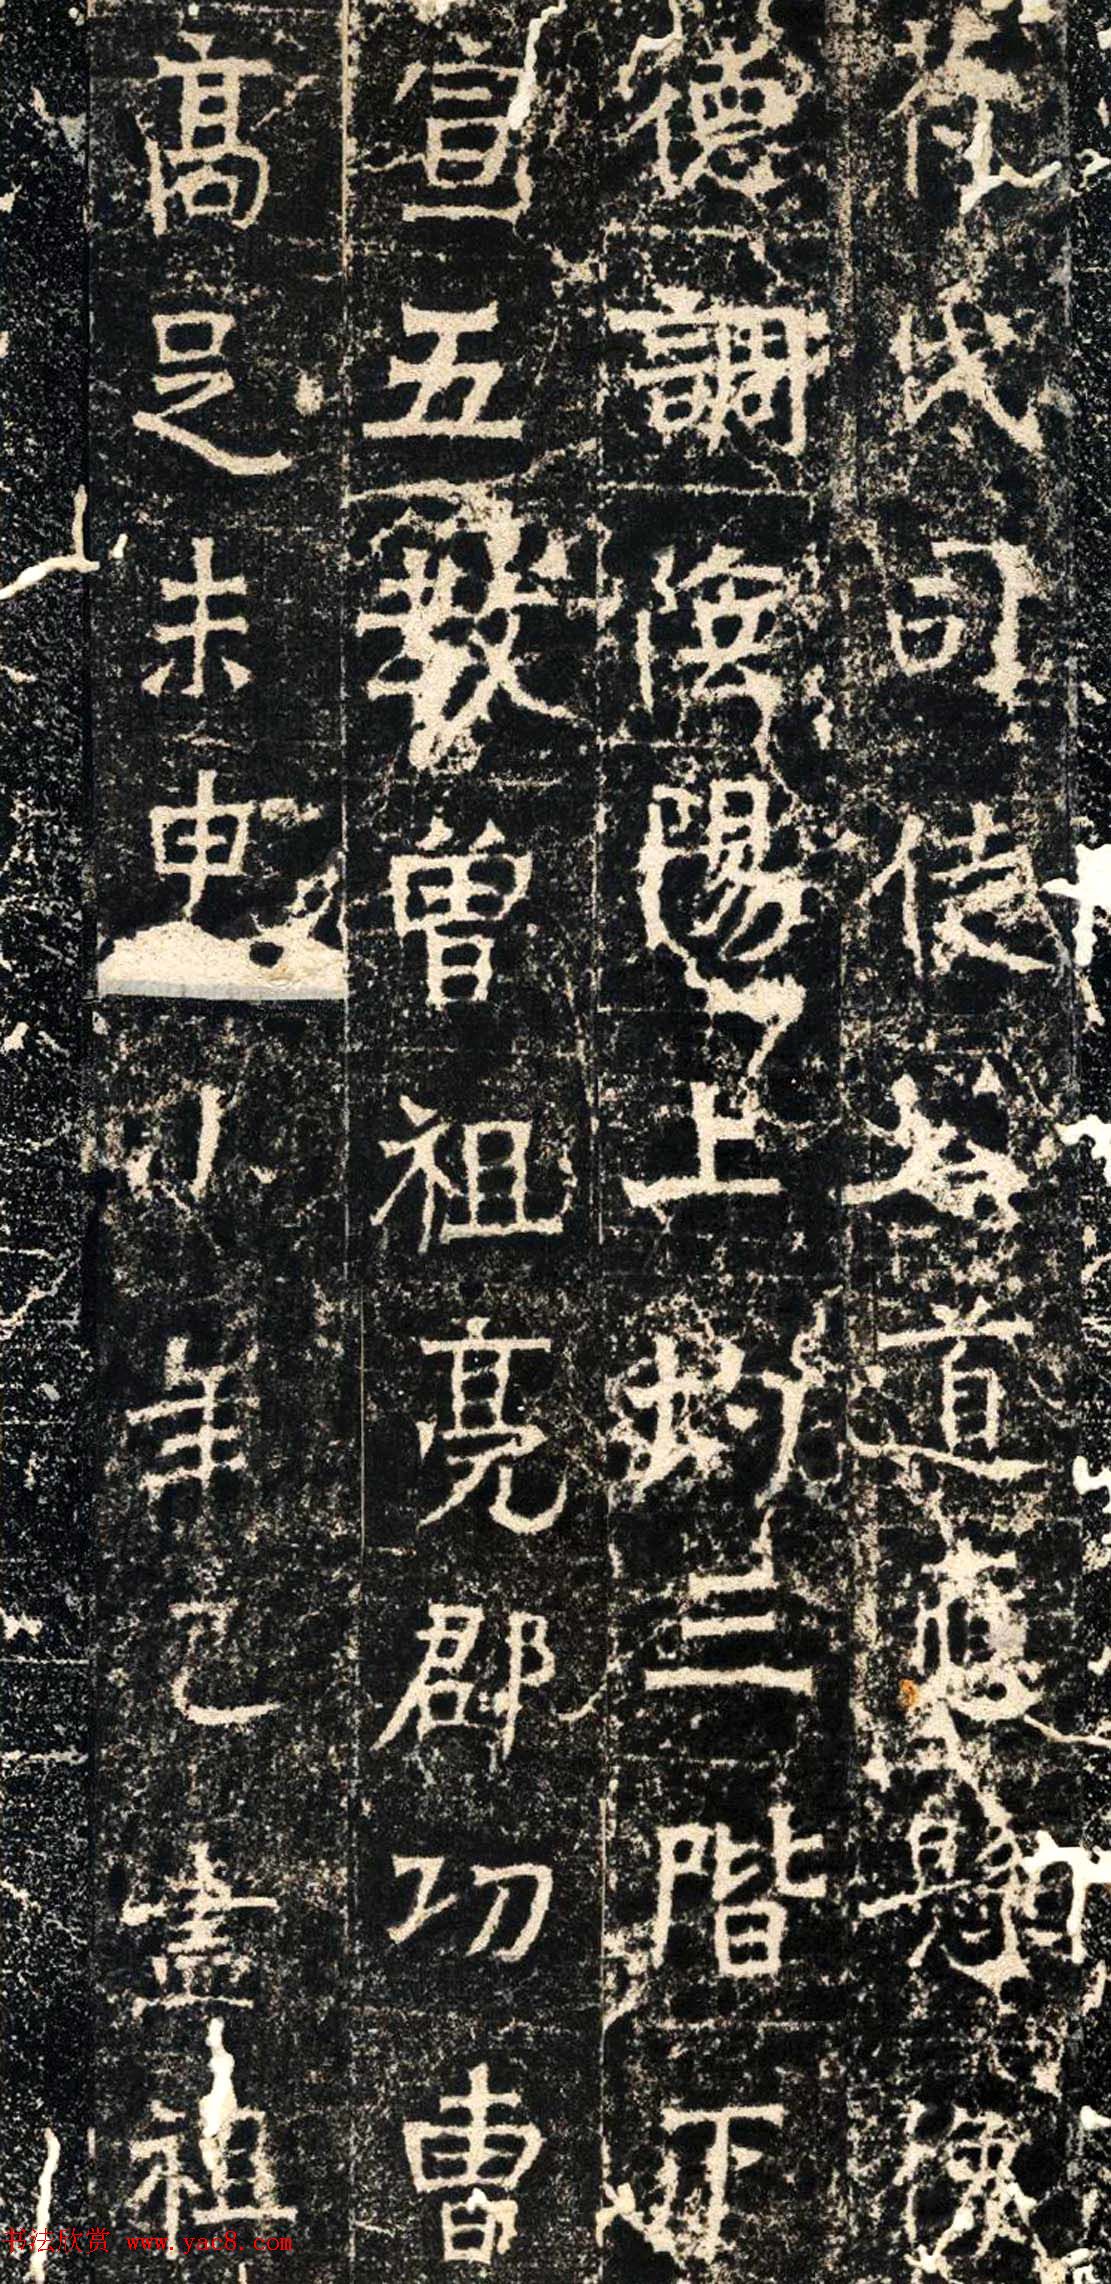 氏司徒為道應懸像
德調陰陽上均三階下
宣五教曾祖亮郡功曹
高足未申小年已盡祖
书法欣赏 www.yac8.com